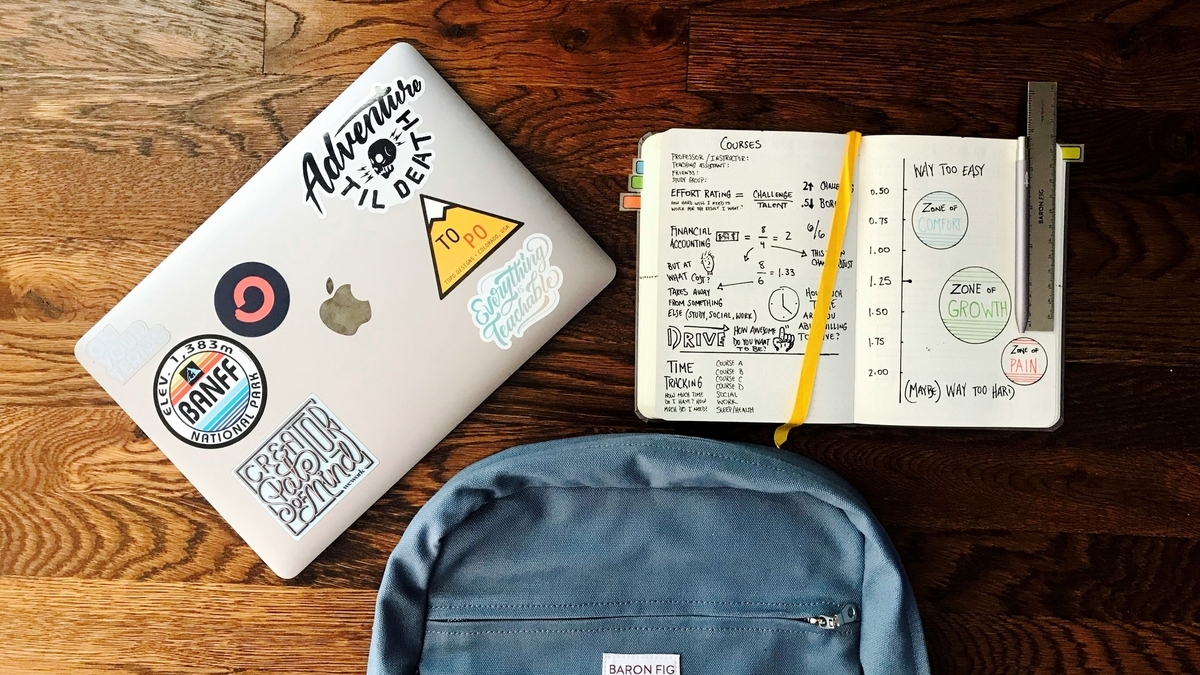 Adventure
'TIL DEATH
TO PO
TOPO DESIGNS • COLORADO, USA
Everything
is
Teachable
ELEV. 1,383m
BANFF
NATIONAL PARK
CREATOR
State
OF Mind
COURSES
PROFESSOR / INSTRUCTOR:
TEACHING ASSISTANT:
FRIENDS:
STUDY GROUP:
EFFORT RATING = CHALLENGE
TALENT
HOW HARD WILL I NEED TO
WORK FOR THE RESULT I WANT?
FINANCIAL
ACCOUNTING
= 8
4
= 2
6/6
BUT AT
WHAT COST?
8
6
= 1.33
TAKES AWAY
FROM SOMETHING
ELSE (STUDY, SOCIAL, WORK)
HOW MUCH
DRIVE
HOW AWESOME
DO YOU WANT
TO BE?
TIME
TRACKING
HOW MUCH TIME
DO I HAVE? HOW
MUCH DO I NEED?
COURSE A
COURSE B
COURSE C
COURSE D
SOCIAL
WORK
SLEEP/HEALTH
WAY TOO EASY
0.50
0.75
1.00
1.25
1.50
1.75
2.00
ZONE OF
COMFORT
ZONE OF
GROWTH
ZONE OF
PAIN
(MAYBE) WAY TOO HARD
BARON FIG
BARON FIG